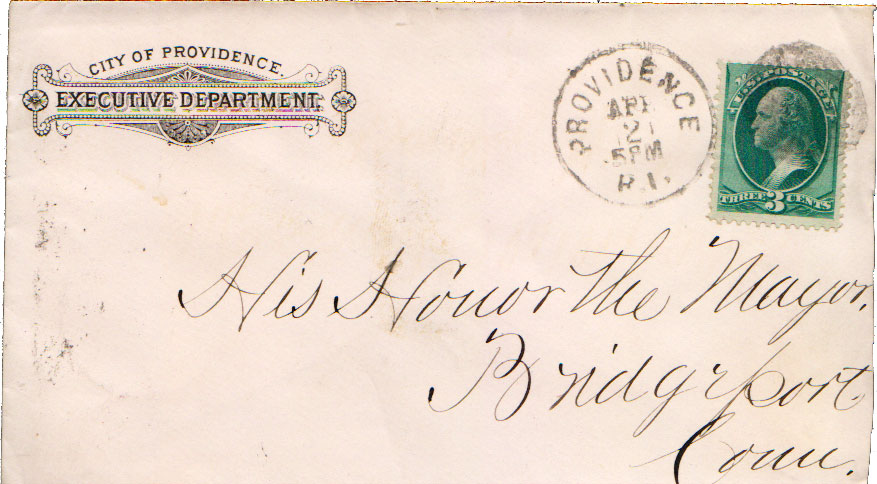 CITY OF PROVIDENCE.
EXECUTIVE DEPARTMENT.
PROVIDENCE
APR
21
5PM
R.I.
U.S. POSTAGE
THREE 3 CENTS
His Honor the Mayor,
Bridgeport
Conn.